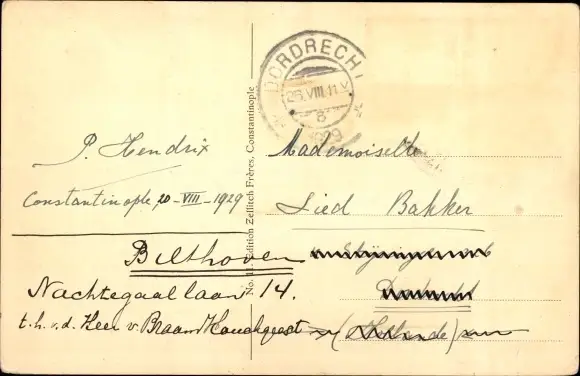 DORDRECHT
26.VIII.11.V
8
1929
No. 11. Edition Zellitch Frères, Constantinople
P. Hendrix
Constantinople 20-VIII-1929
Mademoiselle
Lied Bakker
Bilthoven
Nachtegaallaan 14.
t.h.v.d. Heer v. Braam Houckgeest